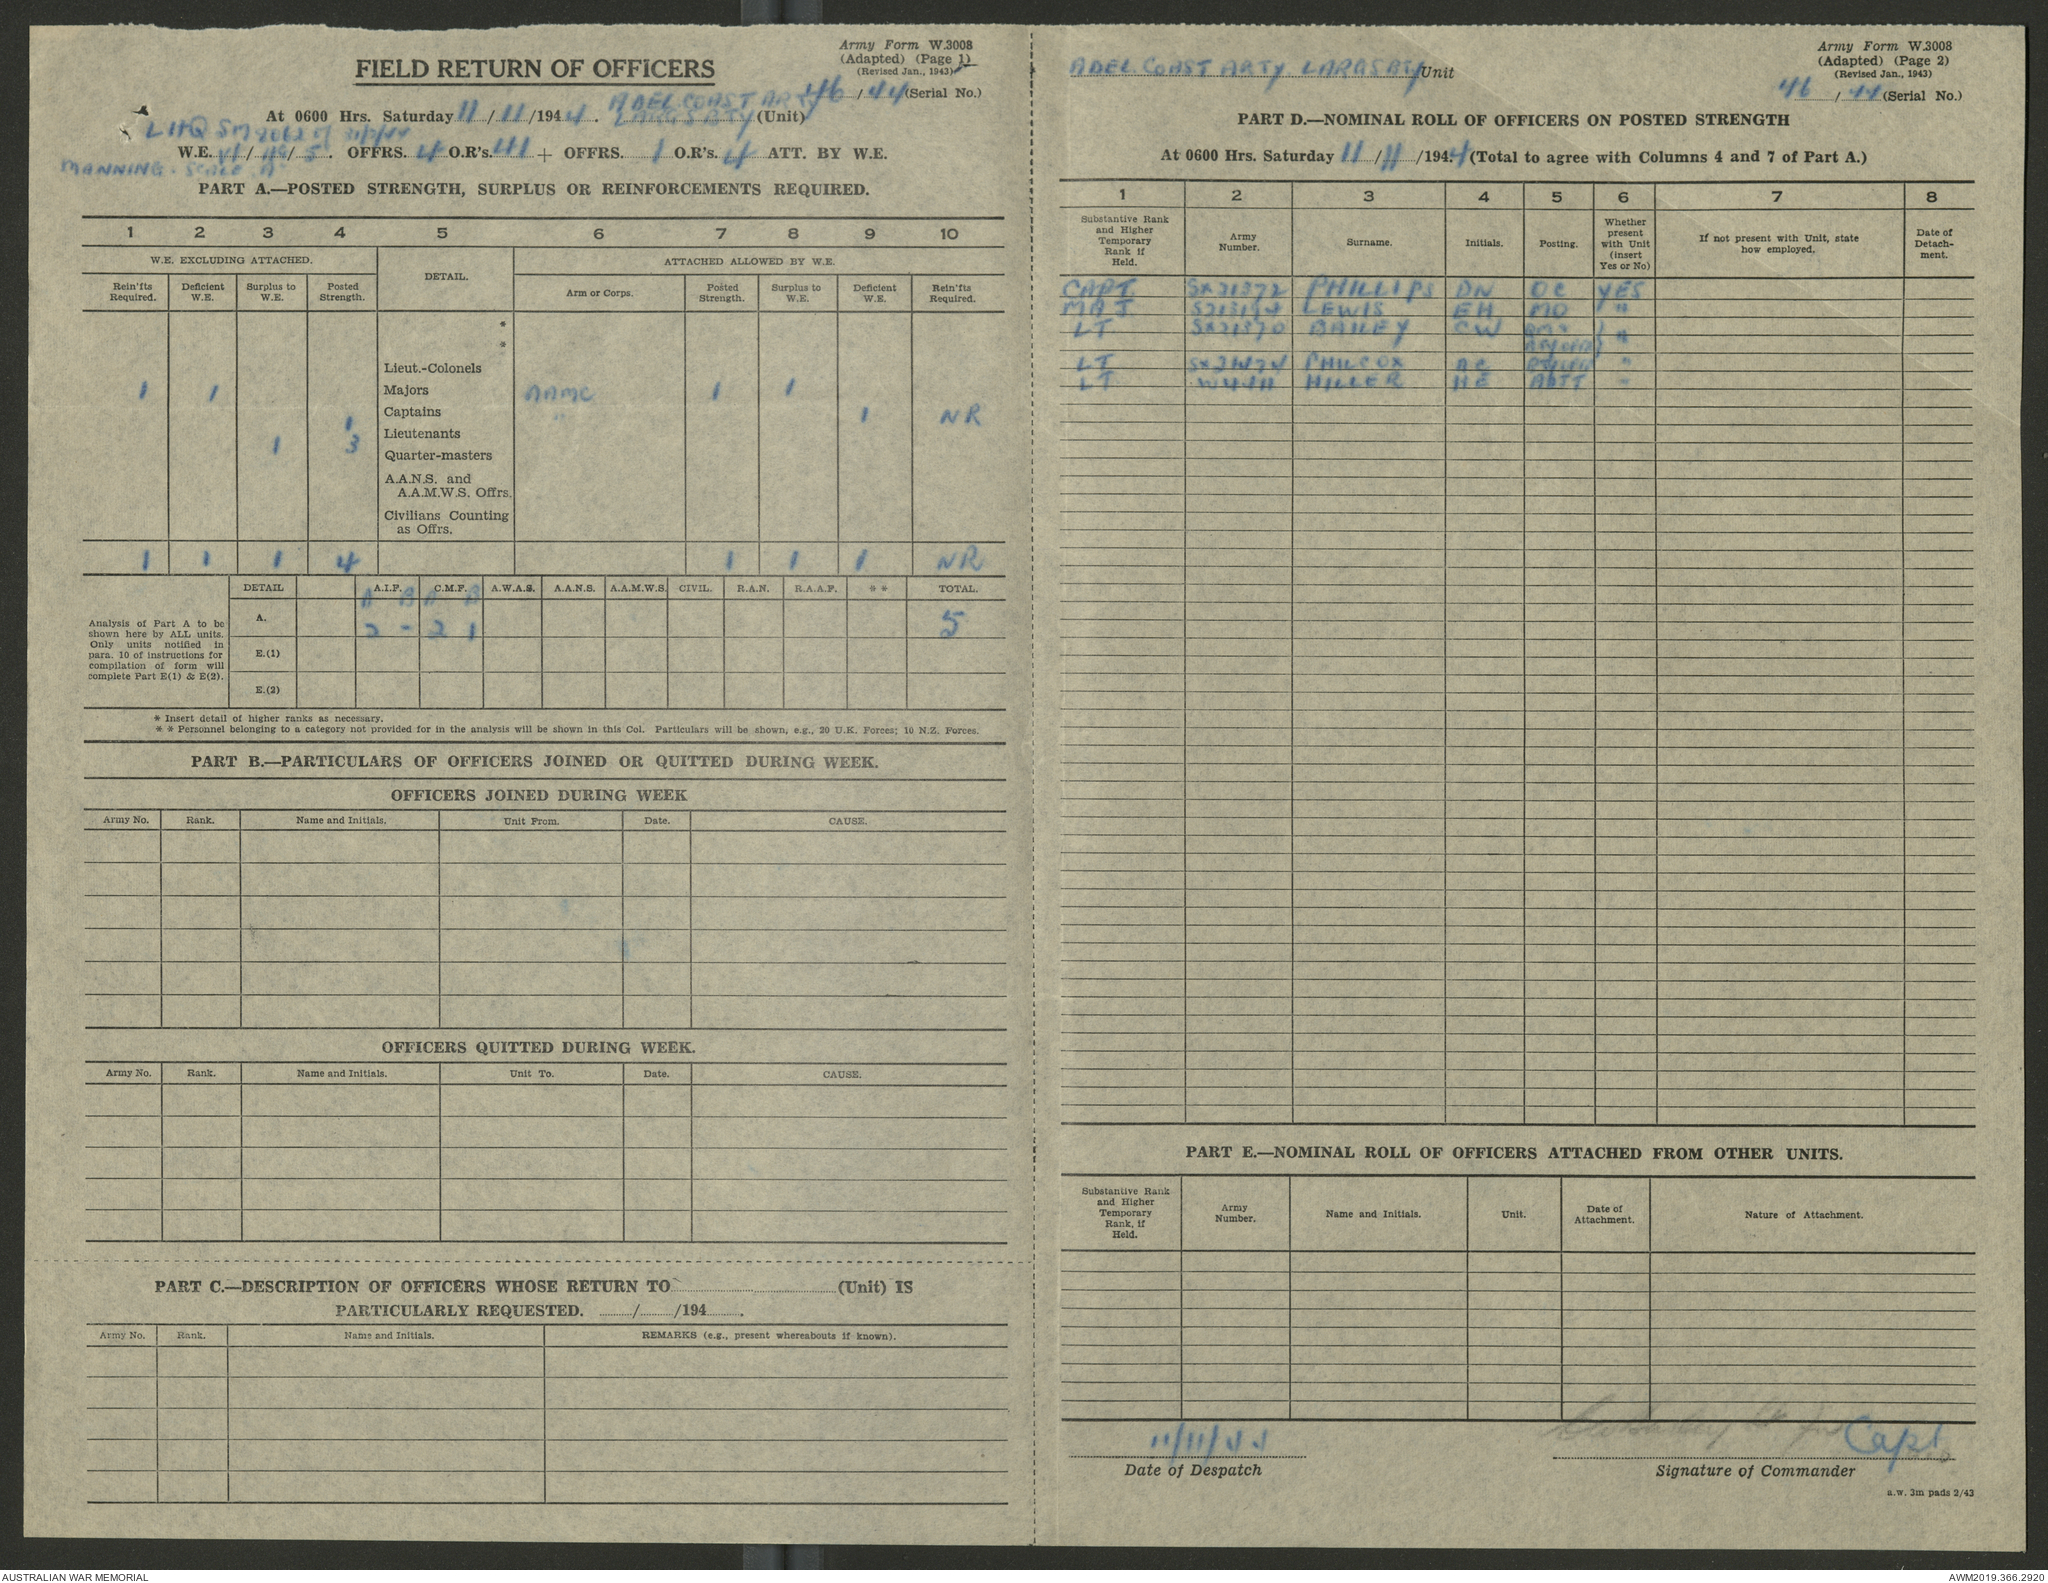 Army Form W.3008
(Adapted) (Page 1)
(Revised Jan., 1943)
FIELD RETURN OF OFFICERS
46/44 (Serial No.)
At 0600 Hrs. Saturday 11/11/1944. ADEL COAST ARTY LARGS BTY (Unit)
LHQ SM
W.E. / / 5. OFFRS. 4 O.R's. 41 + OFFRS. 1 O.R's. 4 ATT. BY W.E.
MANNING. SCALE A
PART A.—POSTED STRENGTH, SURPLUS OR REINFORCEMENTS REQUIRED.
1 2 3 4 5 6 7 8 9 10
W.E. EXCLUDING ATTACHED. DETAIL. ATTACHED ALLOWED BY W.E.
Rein'fts Required. Deficient W.E. Surplus to W.E. Posted Strength. Arm or Corps. Posted Strength. Surplus to W.E. Deficient W.E. Rein'fts Required.
*
*
Lieut.-Colonels
1 1 Majors AAMC 1 1
1 Captains " 1 NR
1 3 Lieutenants
Quarter-masters
A.A.N.S. and
A.A.M.W.S. Offrs.
Civilians Counting
as Offrs.
1 1 1 4 1 1 1 NR
DETAIL A.I.F. C.M.F. A.W.A.S. A.A.N.S. A.A.M.W.S. CIVIL. R.A.N. R.A.A.F. ** TOTAL.
A B A B
A. 2 - 2 1 5
E.(1)
E.(2)
Analysis of Part A to be
shown here by ALL units.
Only units notified in
para. 10 of instructions for
compilation of form will
complete Part E(1) & E(2).
* Insert detail of higher ranks as necessary.
** Personnel belonging to a category not provided for in the analysis will be shown in this Col. Particulars will be shown, e.g., 20 U.K. Forces; 10 N.Z. Forces.
PART B.—PARTICULARS OF OFFICERS JOINED OR QUITTED DURING WEEK.
OFFICERS JOINED DURING WEEK
Army No. Rank. Name and Initials. Unit From. Date. CAUSE.
OFFICERS QUITTED DURING WEEK.
Army No. Rank. Name and Initials. Unit To. Date. CAUSE.
PART C.—DESCRIPTION OF OFFICERS WHOSE RETURN TO (Unit) IS
PARTICULARLY REQUESTED. / /194 .
Army No. Rank. Name and Initials. REMARKS (e.g., present whereabouts if known).
Army Form W.3008
(Adapted) (Page 2)
(Revised Jan., 1943)
ADEL COAST ARTY LARGS BTY Unit
46/44 (Serial No.)
PART D.—NOMINAL ROLL OF OFFICERS ON POSTED STRENGTH
At 0600 Hrs. Saturday 11/11/1944 (Total to agree with Columns 4 and 7 of Part A.)
1 2 3 4 5 6 7 8
Substantive Rank and Higher Temporary Rank if Held. Army Number. Surname. Initials. Posting. Whether present with Unit (insert Yes or No) If not present with Unit, state how employed. Date of Detachment.
CAPT SX21372 PHILLIPS DN OC YES
MAJ LEWIS EH MO "
LT SX21370 BAILEY CW "
LT PHILCOX AC "
LT HILLER HE ATTT "
PART E.—NOMINAL ROLL OF OFFICERS ATTACHED FROM OTHER UNITS.
Substantive Rank and Higher Temporary Rank, if Held. Army Number. Name and Initials. Unit. Date of Attachment. Nature of Attachment.
11/11/44 Capt
Date of Despatch Signature of Commander
a.w. 3m pads 2/43
AUSTRALIAN WAR MEMORIAL AWM2019.366.2920